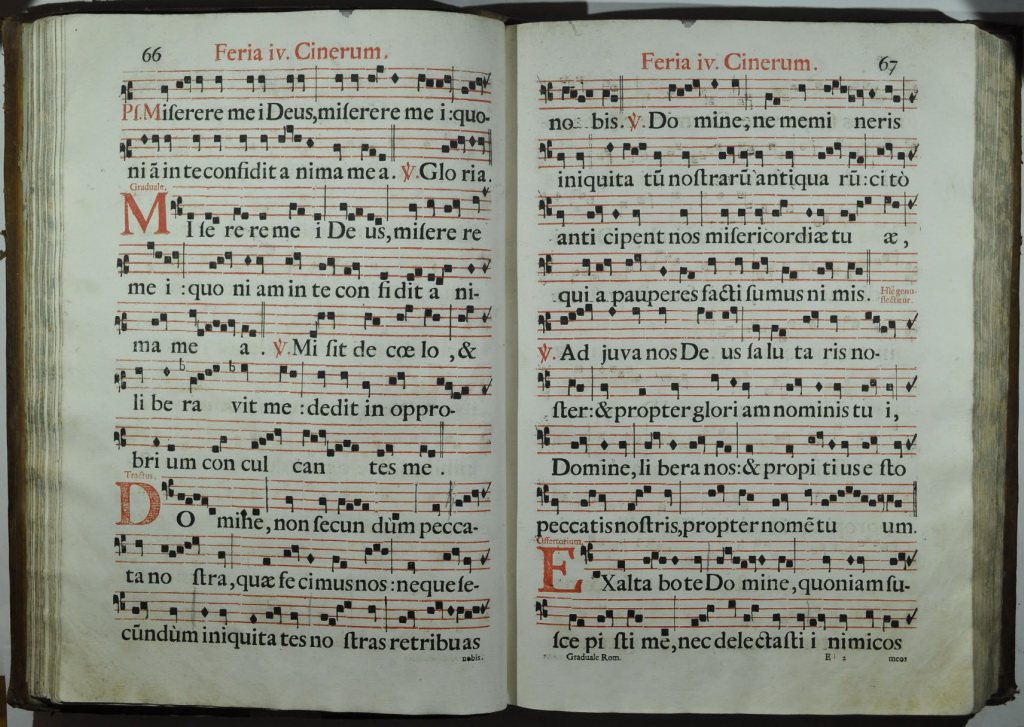 66
Feria iv. Cinerum.
Pſ. Miſerere me i Deus, miſerere re me i : quo-
ni ā in te confidit a nima me a. ℣. Glo ria.
Graduale.
MI ſe re re me i De us, miſere re
me i : quo ni am in te con fi dit a ni-
ma me a . ℣. Mi ſit de cœ lo , &
li be ra vit me : dedit in oppro-
bri um con cul can tes me .
Tractus.
DO mine, non ſecun dùm pecca-
ta no ſtra, quæ fe cimus nos : neque ſe-
cūndùm iniquita tes no ſtras retribu as
nobis.
Feria iv. Cinerum.
67
no bis. ℣. Do mine, ne memi neris
iniquita tū noſtrarū antiqua rū : ci tò
anti cipent nos miſericordiæ tu æ,
qui a pauperes facti ſumus ni mis.
Hîc genu-
flectitur.
℣. Ad juva nos De us ſa lu ta ris no-
ſter : & propter glori am nominis tu i,
Domine, li bera nos : & propi ti us e ſto
peccatis noſtris, propter nomē tu um.
Offertorium.
EXalta bo te Do mine, quoniam ſu-
ſce pi ſti me, nec delectaſti i nimicos
Graduale Rom.
E 2
meos